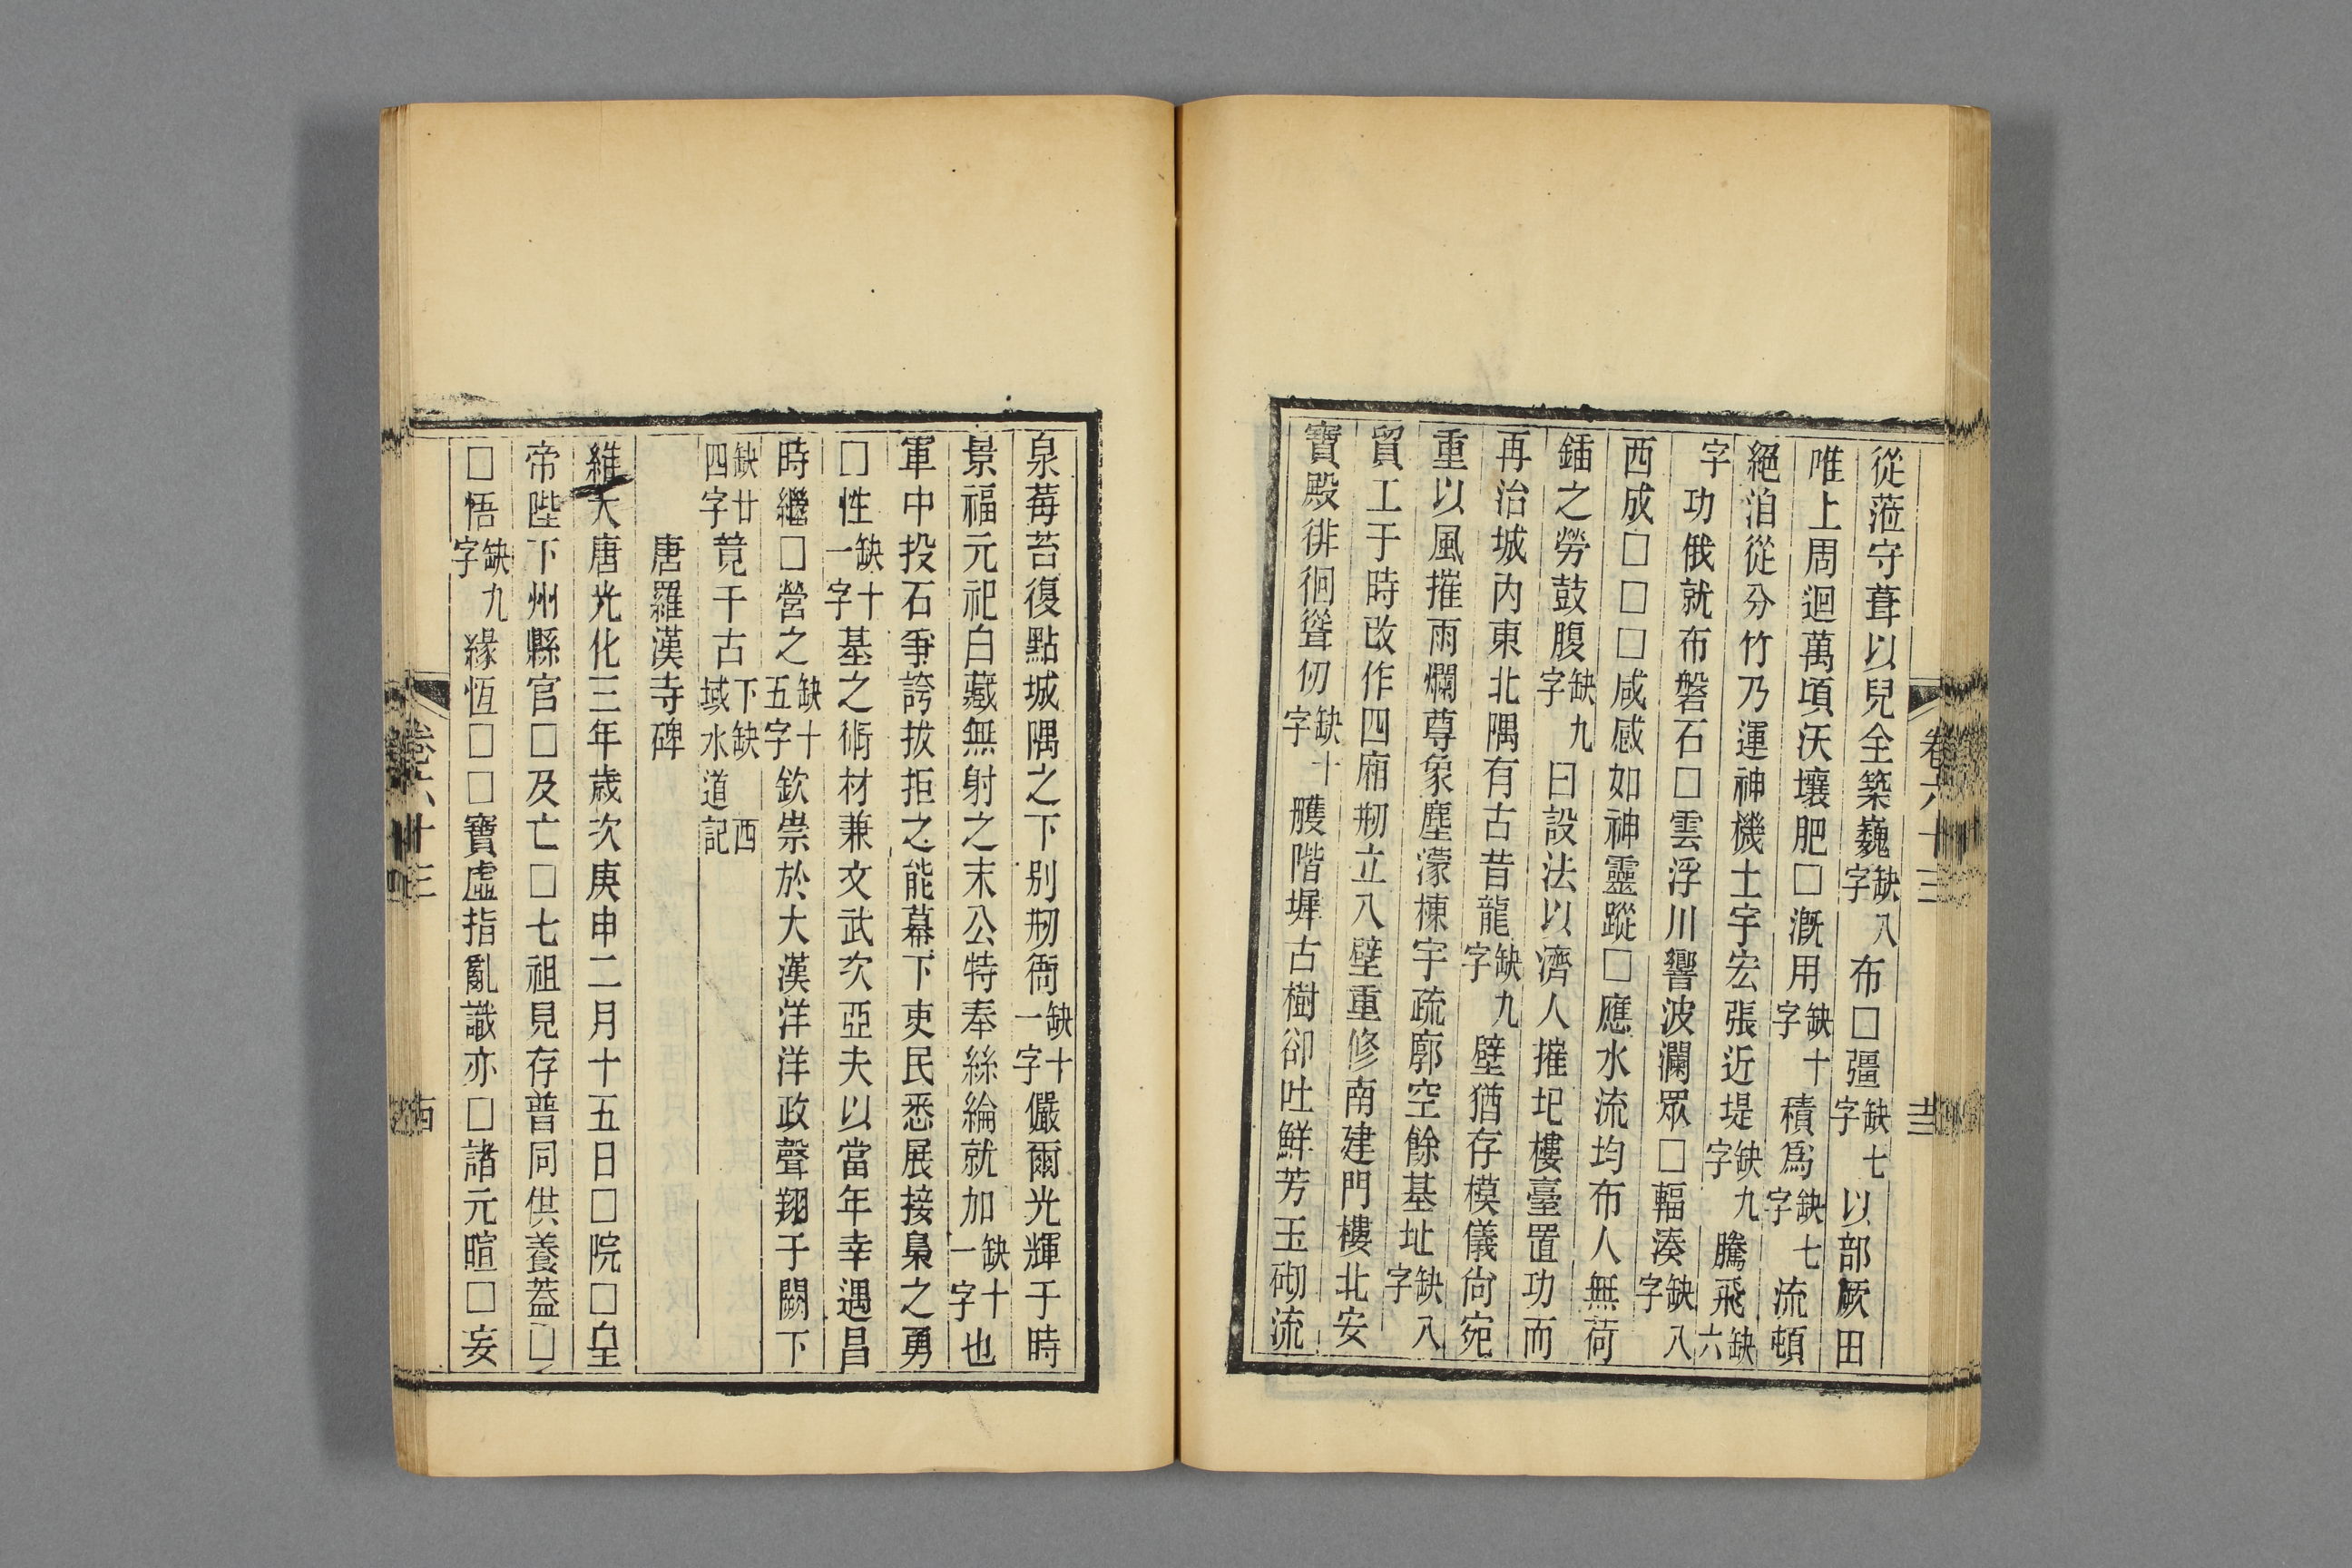 從蒞守葺以兒全築巍缺八字布□彊缺七字以部厥田
唯上周迴萬頃沃壤肥□漑用缺十字積爲缺七字流頓
絕洎從分竹乃運神機士字宏張近堤缺九字騰飛缺六
字功俄就布磐石□雲浮川響波瀾眾□輻湊缺八字
西成□□□咸感如神靈蹤□應水流均布人無荷
鍤之勞鼓腹缺九字日設法以濟人摧圯樓臺置功而
再治城內東北隅有古昔龍缺九字壁猶存模儀尙宛
重以風摧雨爛尊象塵濛棟宇疏廓空餘基址缺八字
貿工于時改作四廂剏立八壁重修南建門樓北安
寶殿徘徊聳仞缺十字雘階墀古樹卻吐鮮芳玉砌流
卷六十三
泉莓苔復點城隅之下別剏衙缺十一字儼爾光輝于時
景福元祀白藏無射之末公特奉絲綸就加缺十一字也
軍中投石爭誇拔拒之能幕下吏民悉展接梟之勇
□性缺十一字基之術材兼文武次亞夫以當年幸遇昌
時繼□營之缺十五字欽崇於大漢洋洋政聲翔于闕下
缺廿四字竟干古下缺 西域水道記
唐羅漢寺碑
維大唐光化三年歲次庚申二月十五日□院□皇
帝陛下州縣官□及亡□七祖見存普同供養蓋□
□悟缺九字緣恆□□寶虛指亂識亦□諸元暄□妄